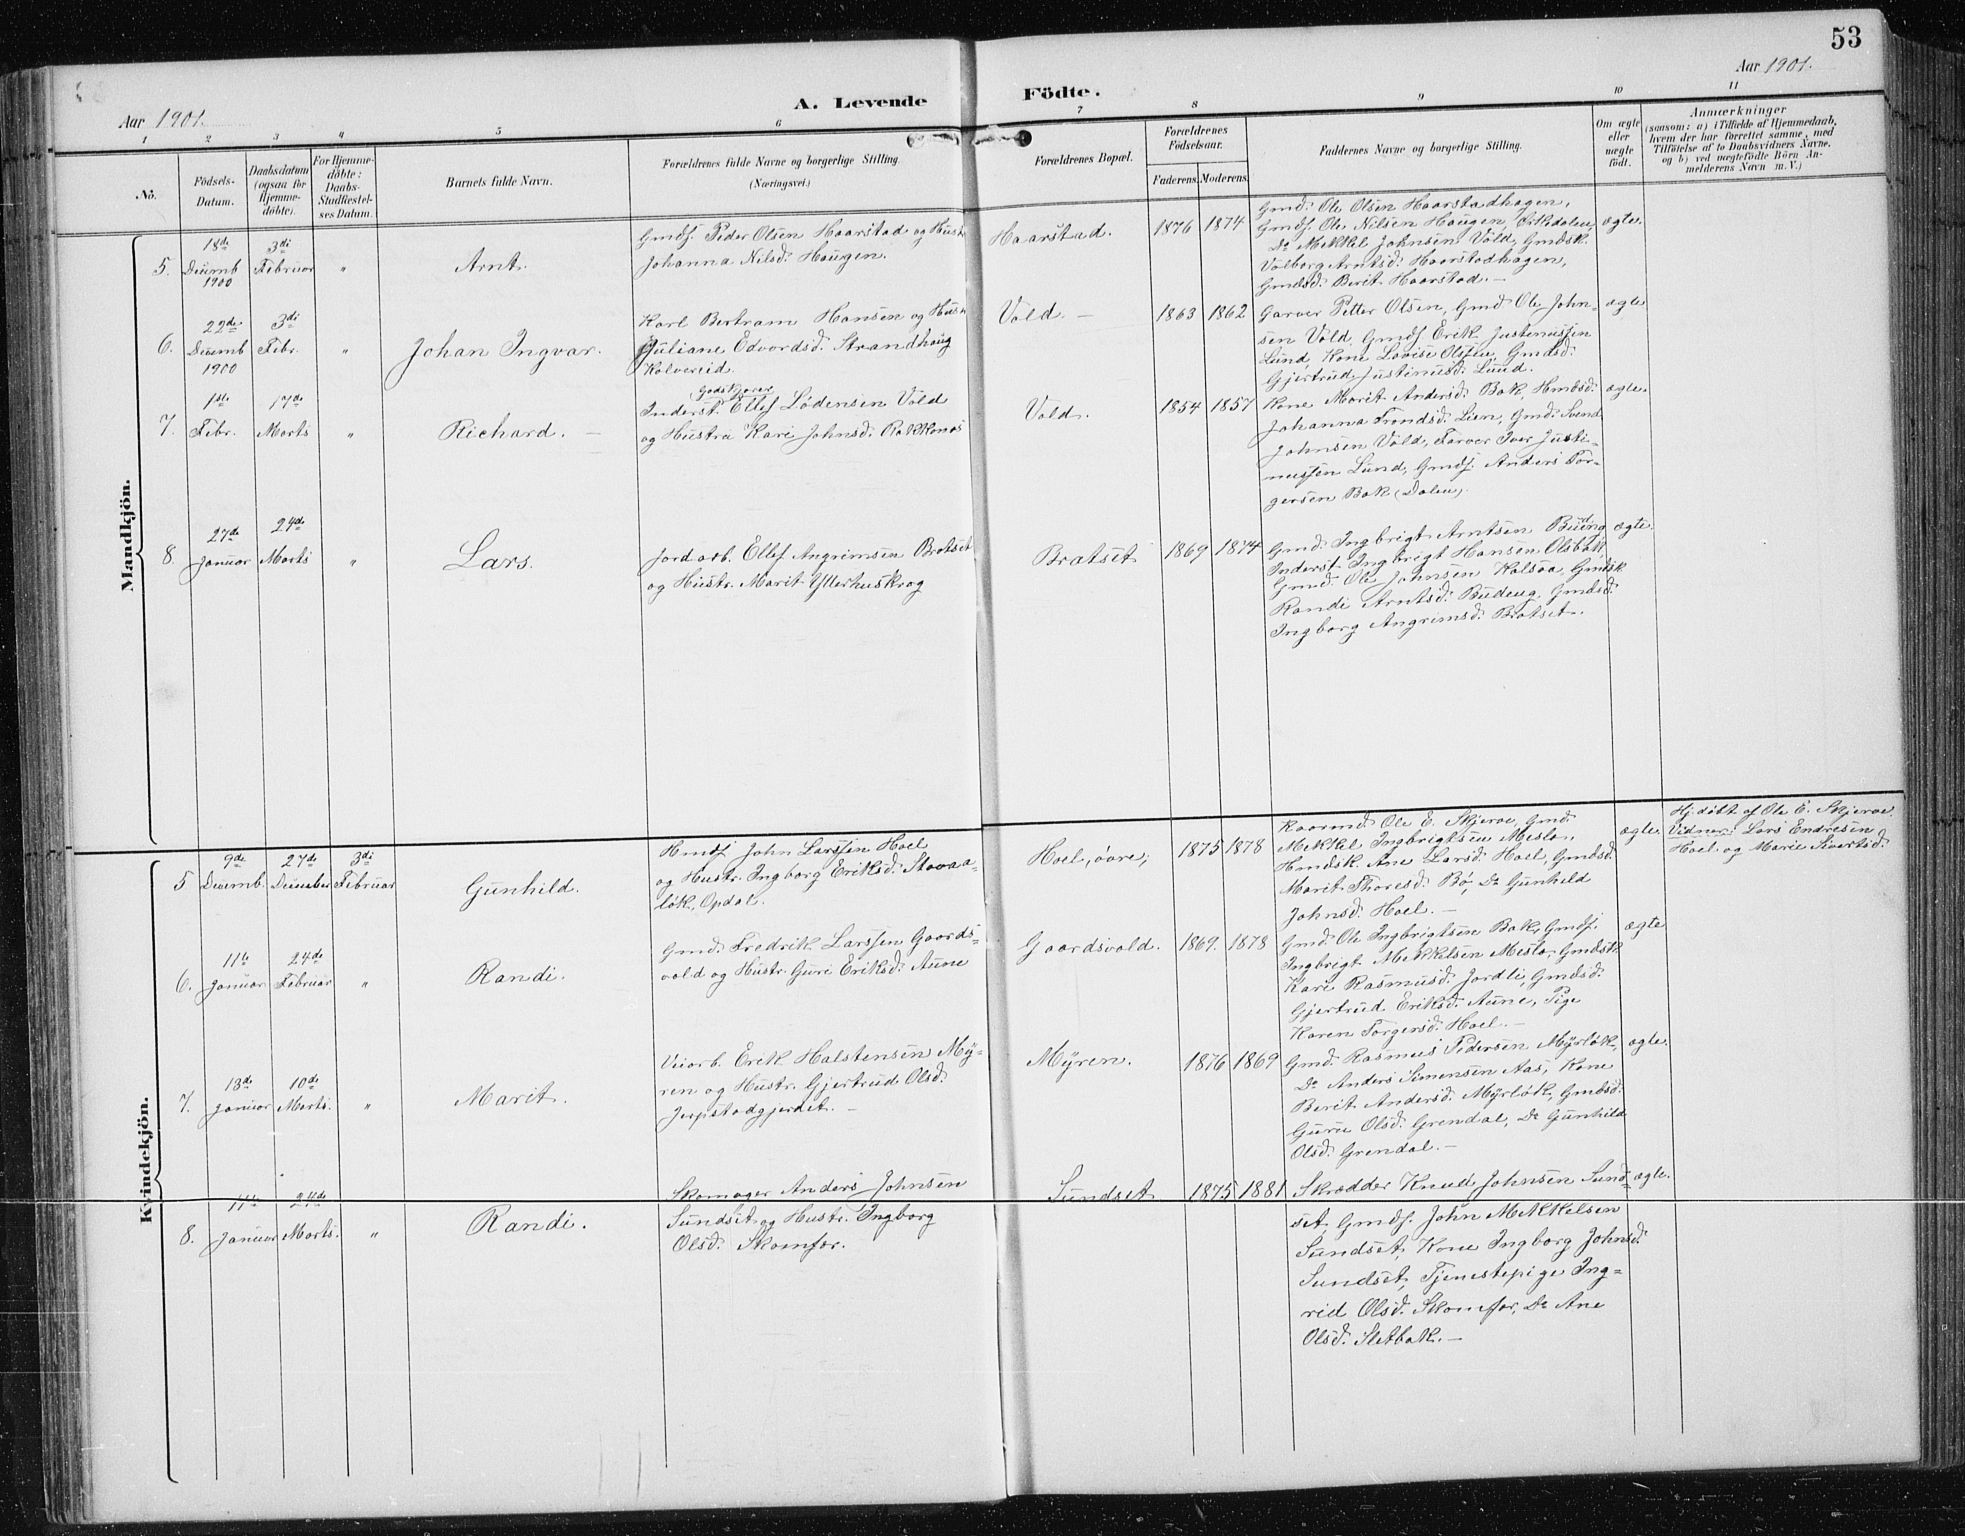 53
Aar 1901.
A. Levende Födte.
Aar 1901.
1 2 3 4 5 6 7 8 9 10 11
No.
Födsels-
Datum.
Daabsdatum
(ogsaa for
Hjemme-
döbte).
For Hjemme-
döbte:
Daabs-
Stadfæstel-
ses Datum.
Barnets fulde Navn.
Forældrenes fulde Navne og borgerlige Stilling
(Næringsvei.)
Forældrenes Bopæl.
Forældrenes
Födselsaar.
Faderens. Moderens.
Faddernes Navne og borgerlige Stilling.
Om ægte
eller
uægte
född.
Anmærkninger
(saasom: a) i Tilfælde af Hjemmedaab,
hvem der har forrettet samme, med
Tilföielse af to Daabsvidners Navne,
og b) ved uægtefödte Börn An-
melderens Navn m. V.)
Mandkjön.
5.
18de
Decemb
1900
3di
Februar
"
Arnt.
Gmdf. Peder Olsen Haarstad og Hustr
Johanna Nilsd. Haugen.
Haarstad.
1876 1874
Gmd. Ole Olsen Haarstadhagen,
Gmdf. Ole Nilsen Haugen, Orkdalen,
Do Mekkel Johnsen Vold, Gmdsk.
Valborg Arntsd. Haarstadhagen,
Gmdsd. Berit Haarstad. —
ægte.
6.
22de
Decemb
1900
3di
Febr.
"
Johan Ingvar.
Karl Bertram Hansen og Hustr
Juliane Edvardsd. Strandhaug
Kolvereid.
Vold. —
1863 1862
Garver Petter Olsen, Gmd Ole John-
sen Vold, Gmdf. Erik Justenussen
Lund, Kone Lovise Olsen, Gmdsd.
Gjertrud Justinusd. Lund.
ægte
7.
1ste
Febr.
17de
Marts
"
Richard. —
Godskjører
Inderst. Ellef Lødensen Vold
og Hustru Kari Johnsd. Rokkones
Vold.
1854 1857
Kone Marit Andersd. Bak, Hmdsd.
Johanna Trondsd. Lien, Gmd. Svend
Johnsen Vold, Farver Iver Justi-
nussen Lund, Gmdf. Anders Tor-
gersen Bak (Dalen).
ægte.
8.
27de
Januar
24de
Marts
"
Lars.
Jordarb. Ellef Angrimsen Bratset
og Hustr. Marit Ytterhuskrog
Bratset
1869 1874
Gmd. Ingbrigt Arntsen Budeng
Inderst. Ingbrigt Hansen Olsbak
Gmd. Ole Johnsen Kalsaa, Gmdsk
Randi Arntsd. Budeng, Gmdsd.
Ingborg Angrimsd. Bratset.
ægte.
Kvindekjön.
5
9de
Decemb.
27de
December
3di
Februar
Gunhild.
Hmdf John Larssen Hoel
og Hustr. Ingborg Eriksd. Stavaa-
løk, Opdal.
Hoel, øvre,
1875 1878
Kaarmd. Ole E. Skjerve, Gmd
Mekkel Ingbrigtsen Meslo,
Hmdsk Ane Larsd. Hoel, Gmdsd.
Marit Thoresd. Bø, Do Gunhild
Johnsd. Hoel. —
ægte.
Hj.døbt af Ole E. Skjerve.
Vidner: Lars Endresen
Hoel og Marie Sivertsd.
6.
11te
Januar
24de
Februar
"
Randi.
Gmd. Fredrik Larssen Gaards-
vold og Hustr. Guri Eriksd. Aune
Gaardsvold.
1869. 1878
Gmd. Ole Ingbrigtsen Bak, Gmdf.
Ingbrigt Mekkelsen Meslo, Gmdsk
Kari Rasmusd. Jordli, Gmdsd.
Gjertrud Eriksd. Aune, Pige
Karen Torgersd. Hoel. —
ægte
7.
13de
Januar
10de
Marts.
"
Marit.
Veiarb. Erik Halstensen My-
ren og Hustr. Gjertrud Olsd.
Jerpstadgjerdet. —
Myren.
1876 1869
Gmd. Rasmus Pedersen Myrløk,
Do Anders Simensen Aas, Kone
Berit Andersd. Myrløk, Gmdsd.
Guru Olsd. Grendal, Do Gunhild
Olsd. Grendal. —
ægte.
8.
11te
Januar
24de
Marts.
"
Randi.
Skomager Anders Johnsen
Sundset og Hustr. Ingborg
Olsd. Skamfer.
Sundset
1875 1881
Skrædder Knud Johnsen Sund-
set, Gmdf. John Mekkelsen
Sundset, Kone Ingborg Johnsd.
Sundset, Tjenestepige Ing-
rid Olsd. Skamfer, Do Ane
Olsd. Sletbak. —
ægte.